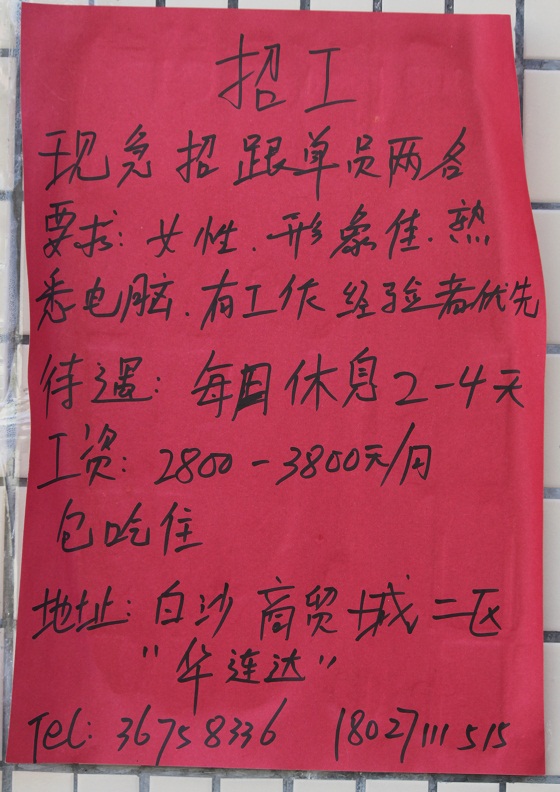 招工
现急招跟单员两名
要求:女性.形象佳.熟
悉电脑.有工作经验者优先
待遇:每月休息2-4天
工资:2800-3800元/月
包吃住
地址:白沙商贸城二区
"华连达"
Tel:36758336 18027111515